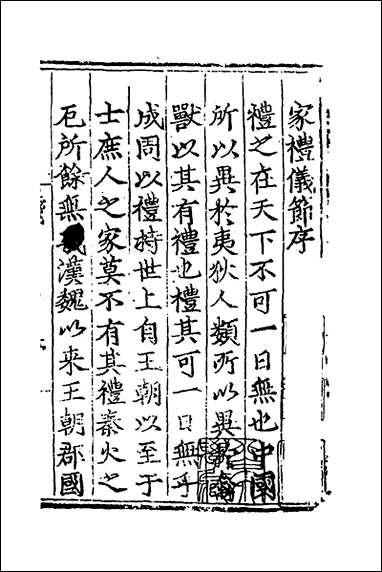 家禮儀節序
禮之在天下不可一日無也中國
所以異於夷狄人類所以異於禽
獸以其有禮也禮其可一日無乎
成周以禮持世上自王朝以至于
士庶人之家莫不有其禮秦火之
厄所餘無幾漢魏以来王朝郡國